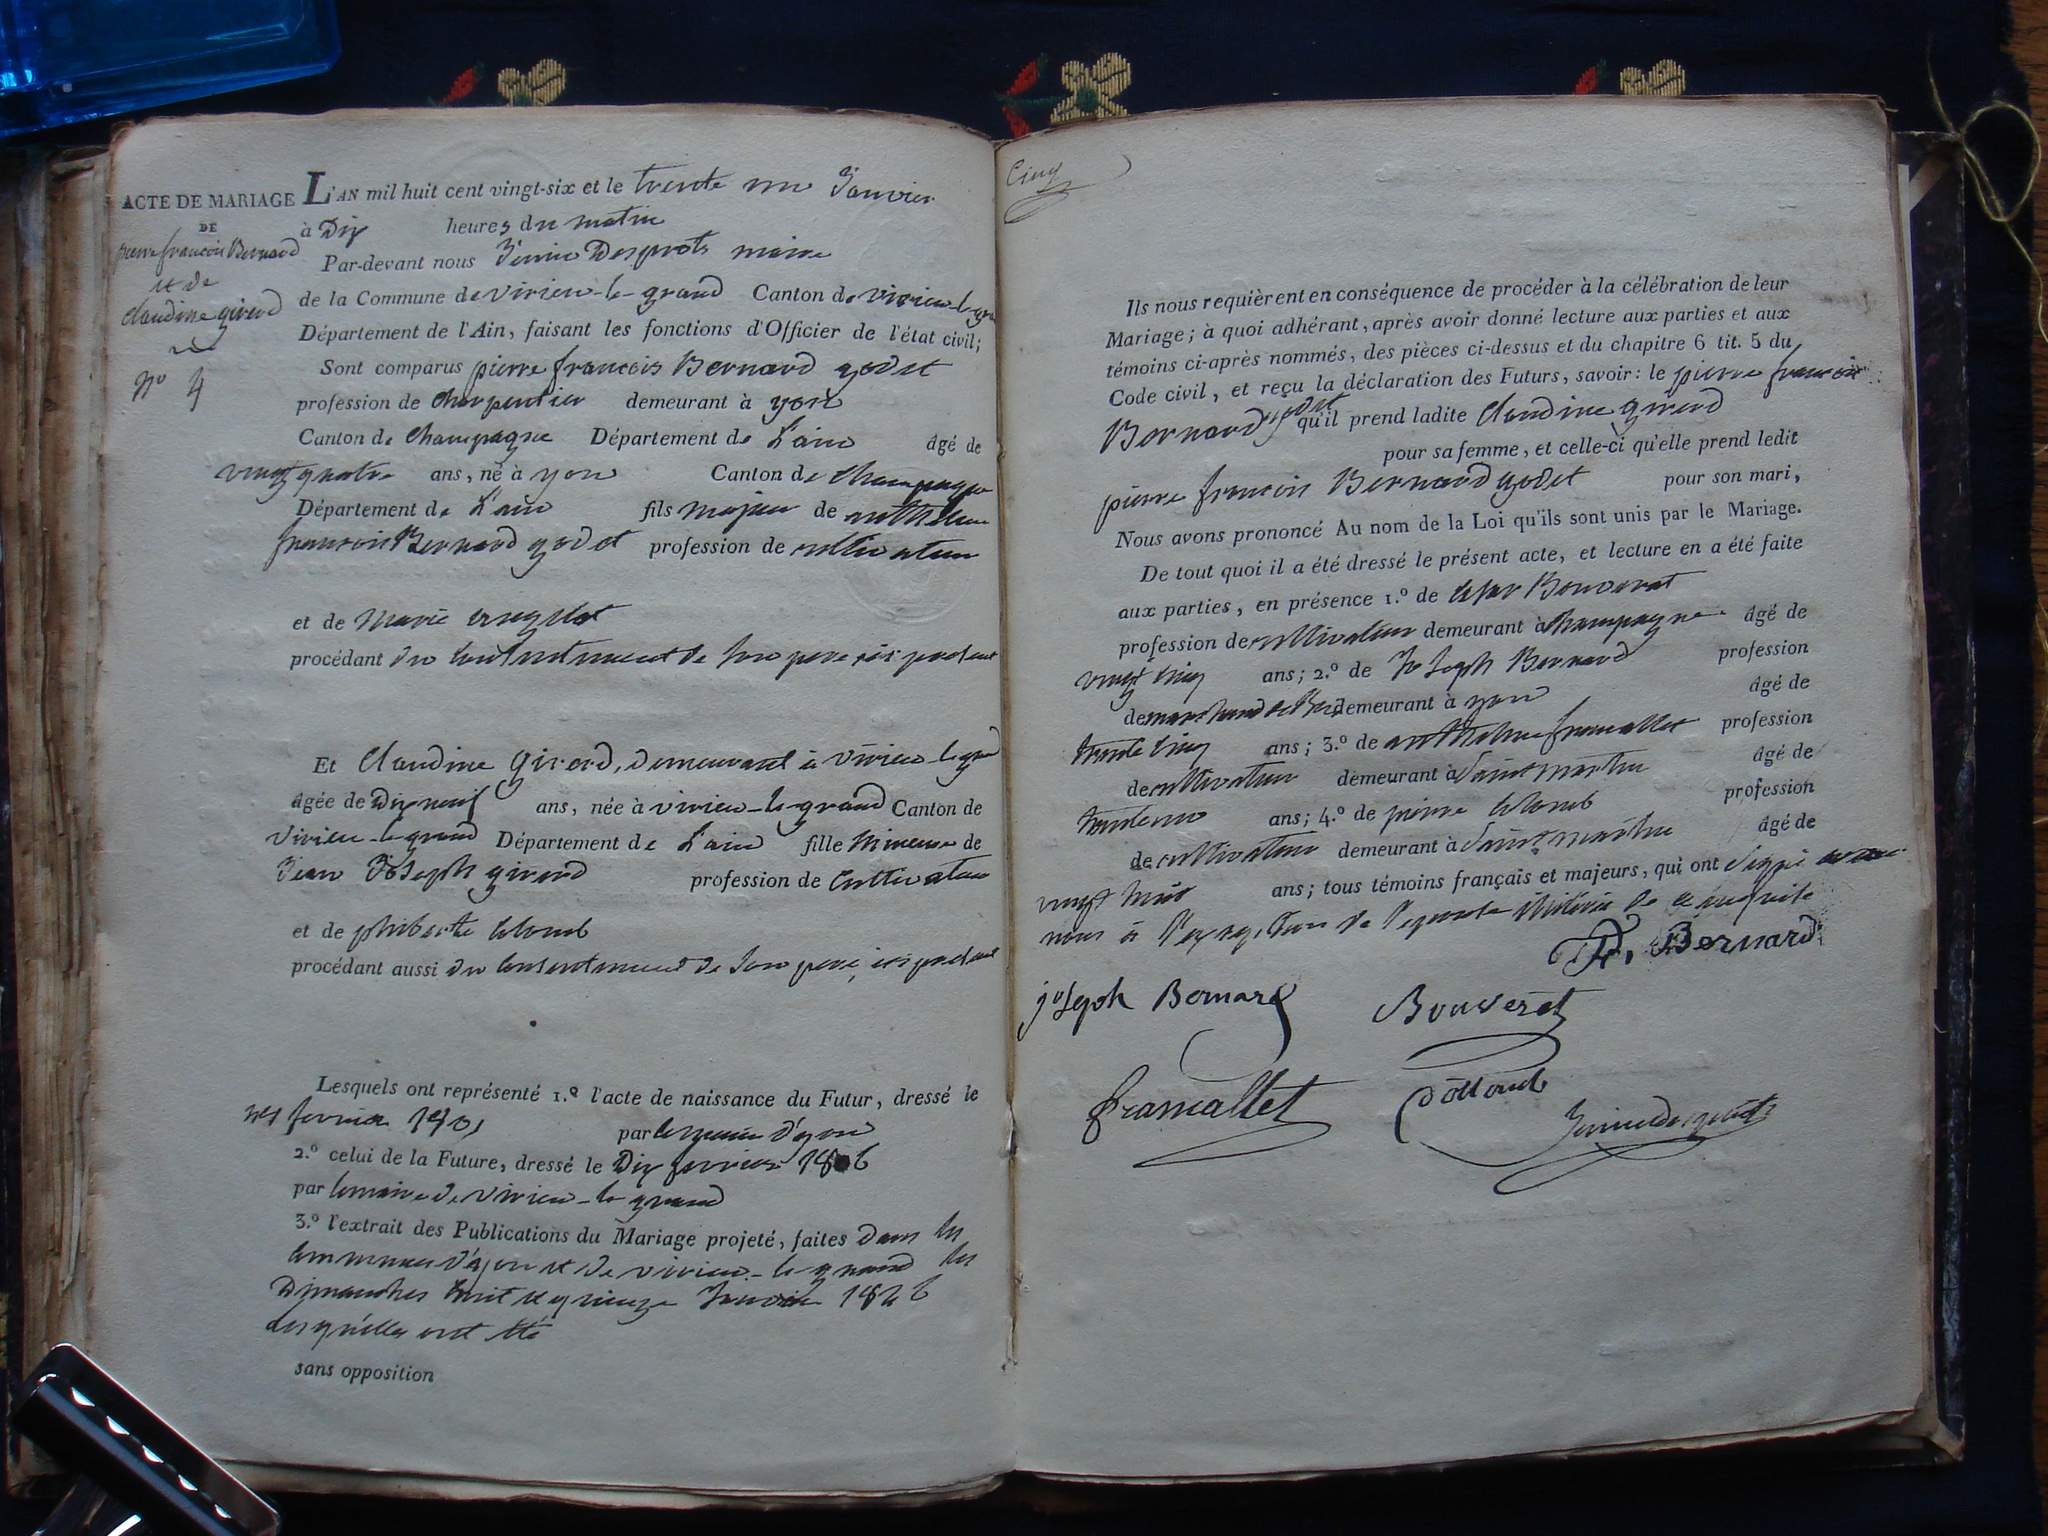 ACTE DE MARIAGE
DE
pierre francois Bernard
et de
claudine girerd
No 4
L'AN mil huit cent vingt-six et le trente un Janvier
à Dix heures du matin
Par-devant nous maire
de la Commune de virieu-le-grand Canton de virieu-le-gra
Département de l'Ain, faisant les fonctions d'Officier de l'état civil;
Sont comparus pierre francois Bernard godet
profession de charpentier demeurant à yon
Canton de champagne Département de L'ain âgé de
vingt quatre ans, né à yon Canton de champagne
Département de L'ain fils majeur de anthelme
francois Bernard godet profession de cultivateur
et de Marie
procédant du consentement de son pere, ici présent
Et Claudine Girerd, demeurant à virieu-le-grand
âgée de Dix neuf ans, née à virieu-le-grand Canton de
virieu-le-grand Département de L'ain fille mineure de
Jean Joseph girerd profession de cultivateur
et de philiberte colomb
procédant aussi du consentement de son pere, ici présent
Lesquels ont représenté 1.º l'acte de naissance du Futur, dressé le
fevrier par le maire d'yon
2.º celui de la Future, dressé le Dix fevrier 1806
par le maire de virieu-le-grand
3.º l'extrait des Publications du Mariage projeté, faites dans les
communes d'yon et de virieu-le-grand les
Dimanches huit et quinze Janvier 1826
lesquelles ont été
sans opposition
Cinq
Ils nous requièrent en conséquence de procéder à la célébration de leur
Mariage; à quoi adhérant, après avoir donné lecture aux parties et aux
témoins ci-après nommés, des pièces ci-dessus et du chapitre 6 tit. 5 du
Code civil, et reçu la déclaration des Futurs, savoir: le pierre francois
Bernard godet qu'il prend ladite Claudine girerd
pour sa femme, et celle-ci qu'elle prend ledit
pierre francois Bernard godet pour son mari,
Nous avons prononcé Au nom de la Loi qu'ils sont unis par le Mariage.
De tout quoi il a été dressé le présent acte, et lecture en a été faite
aux parties, en présence 1.º de Bouveret
profession de cultivateur demeurant à champagne âgé de
vingt cinq ans; 2.º de Joseph Bernard profession
de marchand de demeurant à yon âgé de
trente cinq ans; 3.º de anthelme francallet profession
de cultivateur demeurant à saint martin âgé de
trente un ans; 4.º de pierre colomb profession
de cultivateur demeurant à saint martin âgé de
vingt huit ans; tous témoins français et majeurs, qui ont signé avec
nous à l'exception de l'epouse illitérée de ce enquise
Fr. Bernard
joseph Bernard Bouveret
francallet Collomb